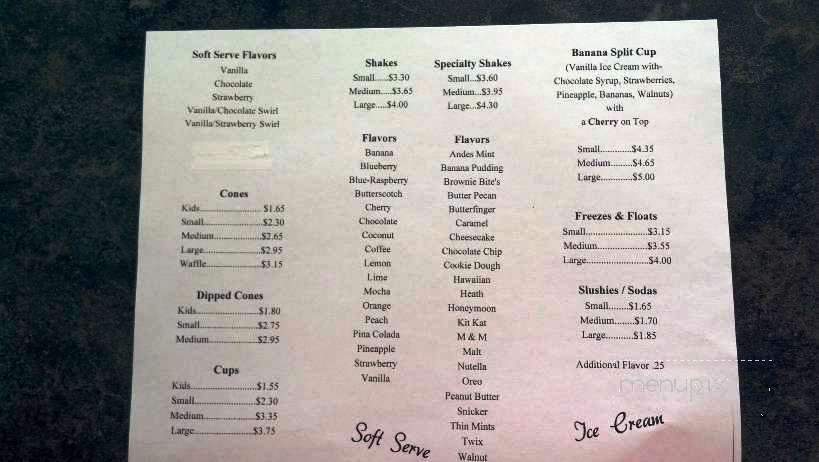 Soft Serve Flavors
Vanilla
Chocolate
Strawberry
Vanilla/Chocolate Swirl
Vanilla/Strawberry Swirl
Cones
Kids............................ $1.65
Small..........................$2.30
Medium......................$2.65
Large..........................$2.95
Waffle.........................$3.15
Dipped Cones
Kids............................$1.80
Small..........................$2.75
Medium......................$2.95
Cups
Kids............................$1.55
Small..........................$2.30
Medium......................$3.35
Large..........................$3.75
Shakes
Small.....$3.30
Medium.....$3.65
Large.....$4.00
Flavors
Banana
Blueberry
Blue-Raspberry
Butterscotch
Cherry
Chocolate
Coconut
Coffee
Lemon
Lime
Mocha
Orange
Peach
Pina Colada
Pineapple
Strawberry
Vanilla
Soft Serve
Specialty Shakes
Small...$3.60
Medium...$3.95
Large...$4.30
Flavors
Andes Mint
Banana Pudding
Brownie Bite's
Butter Pecan
Butterfinger
Caramel
Cheesecake
Chocolate Chip
Cookie Dough
Hawaiian
Heath
Honeymoon
Kit Kat
M & M
Malt
Nutella
Oreo
Peanut Butter
Snicker
Thin Mints
Twix
Walnut
Banana Split Cup
(Vanilla Ice Cream with-
Chocolate Syrup, Strawberries,
Pineapple, Bananas, Walnuts)
with
a Cherry on Top
Small.............$4.35
Medium.........$4.65
Large.............$5.00
Freezes & Floats
Small..........................$3.15
Medium......................$3.55
Large..........................$4.00
Slushies / Sodas
Small........$1.65
Medium.......$1.70
Large..........$1.85
Additional Flavor .25
Ice Cream